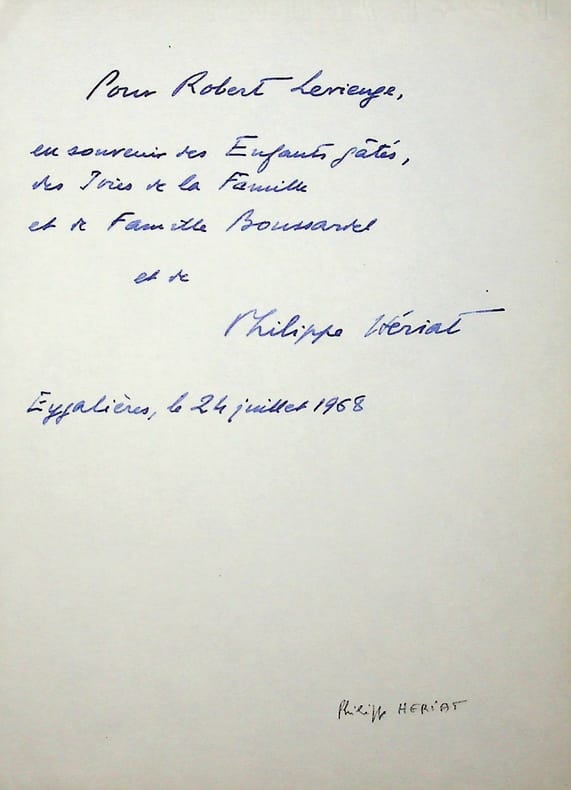 Pour Robert Levienge,
en souvenir des Enfants gâtés,
des Joies de la Famille
et de Famille Boussardel
et de
Philippe Hériat
Eygalières, le 24 juillet 1968
Philipp HERIAT